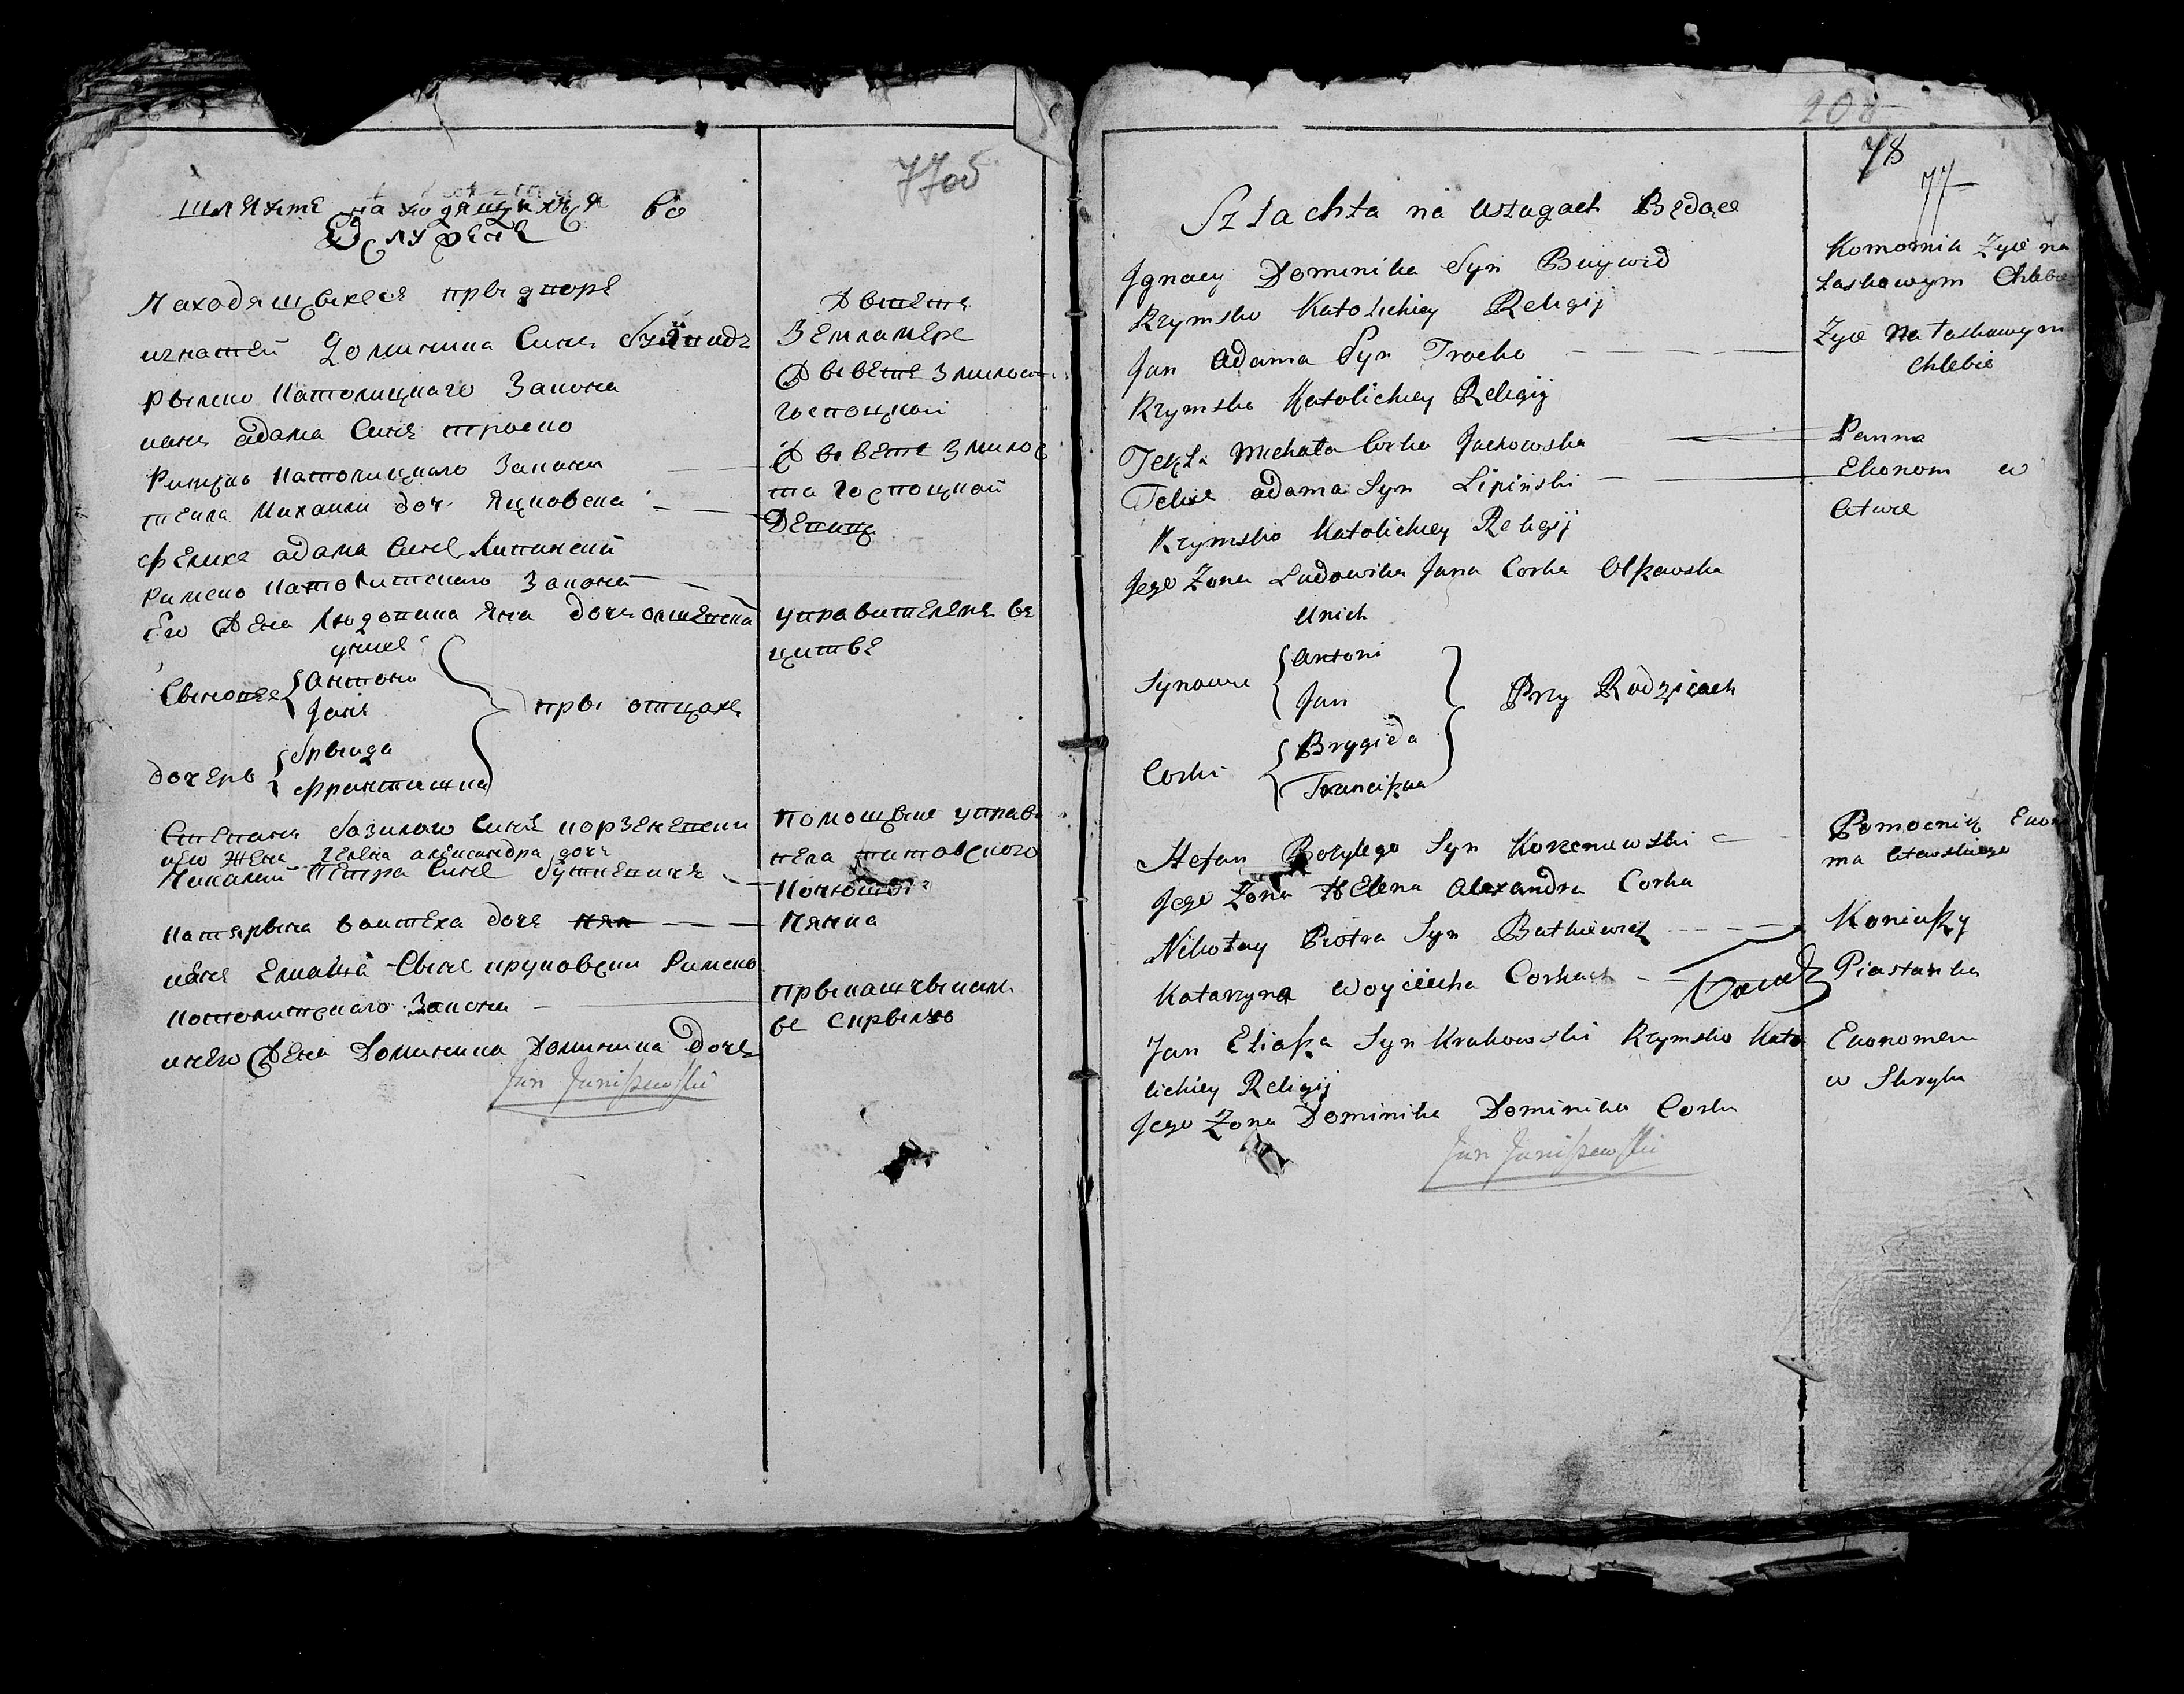 77об
Шляхте находящихся во
Службе
Находящыеся пры дворе
игнацей Доминика Сынъ буйвидъ
рымско Католицкаго Закона
янъ адама Сынъ троско
Римско Католицкаго Закона
текля Михаила доч Яцковска
феликс адама Сынъ Липинский
Римско Католитскаго Закона
его Жена Людовика Яна дочъ
Сыновья { Антони
Янъ
пры отцахъ
дочерь { брыгида
франтишка
Степанъ базилого Сынъ корженевски
его жена Гелена александра дочъ
Николай Петра Сынъ буткевичъ
Катарына воитеха дочъ
янъ Елиаша Сынъ краковски Римско
Католитскаго Закона
и его Жена Доминика Доминика дочъ
Jan Janiszewski
Землемере
Живете З милости
господской
Живете З милос
та господской
Девица
управителемъ въ
цитве
помощник управи
Конюшы
Нянка
прыкашчыкам
208
78
77
Szlachta na Usługach Będące
Jgnacy Dominika Syn Buywid
Rzymsko Katolickiey Religij
Jan Adama Syn Trocko
Rzymsko Katolickiey Religij
Tekla Michała Corka Jackowska
Felix Adama Syn Lipiński
Rzymsko Katolickiey Religij
Jego Zona Ludowika Jana Corka Olszewska
Synowie { Antoni
Jan
Przy Rodzicach
Corki { Brygida
Franciszka
Stefan Bazylego Syn Korzeniewski
Jego Zona Helena Alexandra Corka
Nikołay Piotra Syn Butkiewicz
Katarzyna Woyciecha Corka
Jan Eliasza Syn Krakowski Rzymsko Kato
lickiey Religij
Jego Zona Dominika Dominika Corka
Jan Janiszewski
Komornik Zyie na
Łaskawym Chlebie
Zyie na Łaskawym
Chlebie
Panna
Ekonom w
Pomocnik Ekono
ma
Koniuszy
Piastunka
Ekonomem
w